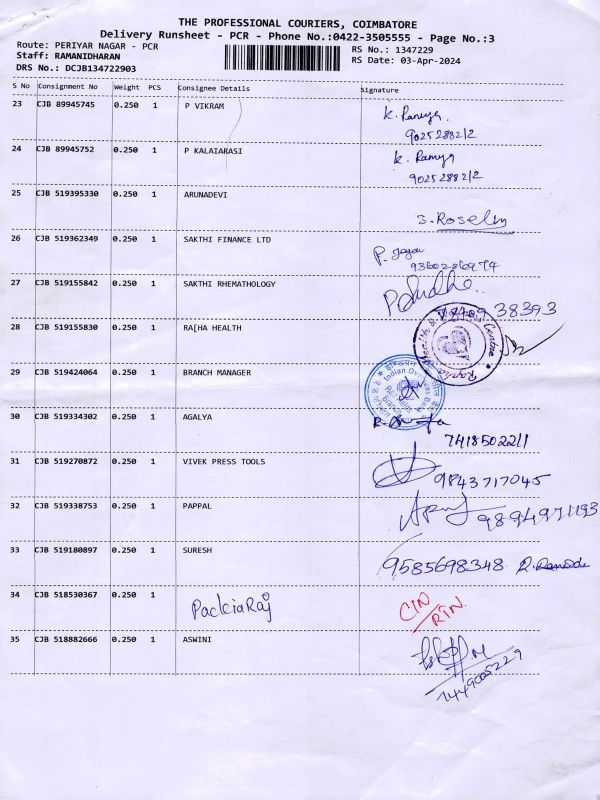 THE PROFESSIONAL COURIERS, COIMBATORE
Delivery Runsheet - PCR - Phone No.:0422-3505555 - Page No.:3
Route: PERIYAR NAGAR - PCR
RS No.: 1347229
Staff: RAMANIDHARAN
RS Date: 03-Apr-2024
DRS No.: DCJB134722903
S No Consignment No Weight PCS Consignee Details Signature
23 CJB 89945745 0.250 1 P VIKRAM K. Ramya.
9025288212
24 CJB 89945752 0.250 1 P KALAIARASI K. Ramya
9025288212
25 CJB 519395330 0.250 1 ARUNADEVI
3. Roselin
26 CJB 519362349 0.250 1 SAKTHI FINANCE LTD
27 CJB 519155842 0.250 1 SAKTHI RHEMATHOLOGY
38393
28 CJB 519155830 0.250 1 RA[HA HEALTH
Centre
29 CJB 519424064 0.250 1 BRANCH MANAGER
Indian Overseas Bank
30 CJB 519334302 0.250 1 AGALYA
7418502211
31 CJB 519270872 0.250 1 VIVEK PRESS TOOLS
9843717045
32 CJB 519338753 0.250 1 PAPPAL
9894971193
33 CJB 519180897 0.250 1 SURESH
9585698348
34 CJB 518530367 0.250 1 PackiaRaj CIN/RTN.
35 CJB 518882666 0.250 1 ASWINI